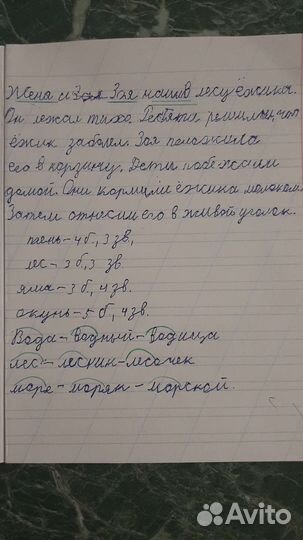 Женя и Зоя Зоя нашли в лесу ёжика.
Он лежал тихо. Ребята решили, что
ёжик заболел. Зоя положила
его в корзину. Дети побежали
домой. Они кормили ёжика молоком.
Затем отнесли его в живой уголок.
пень-4 б., 3 зв,
лес-3 б, 3 зв.
яма-3 б, 4 зв.
окунь-5 б, 4 зв.
Вода-водный-водица
лес-лесник-лесочек
море-моряк-морской.
Avito